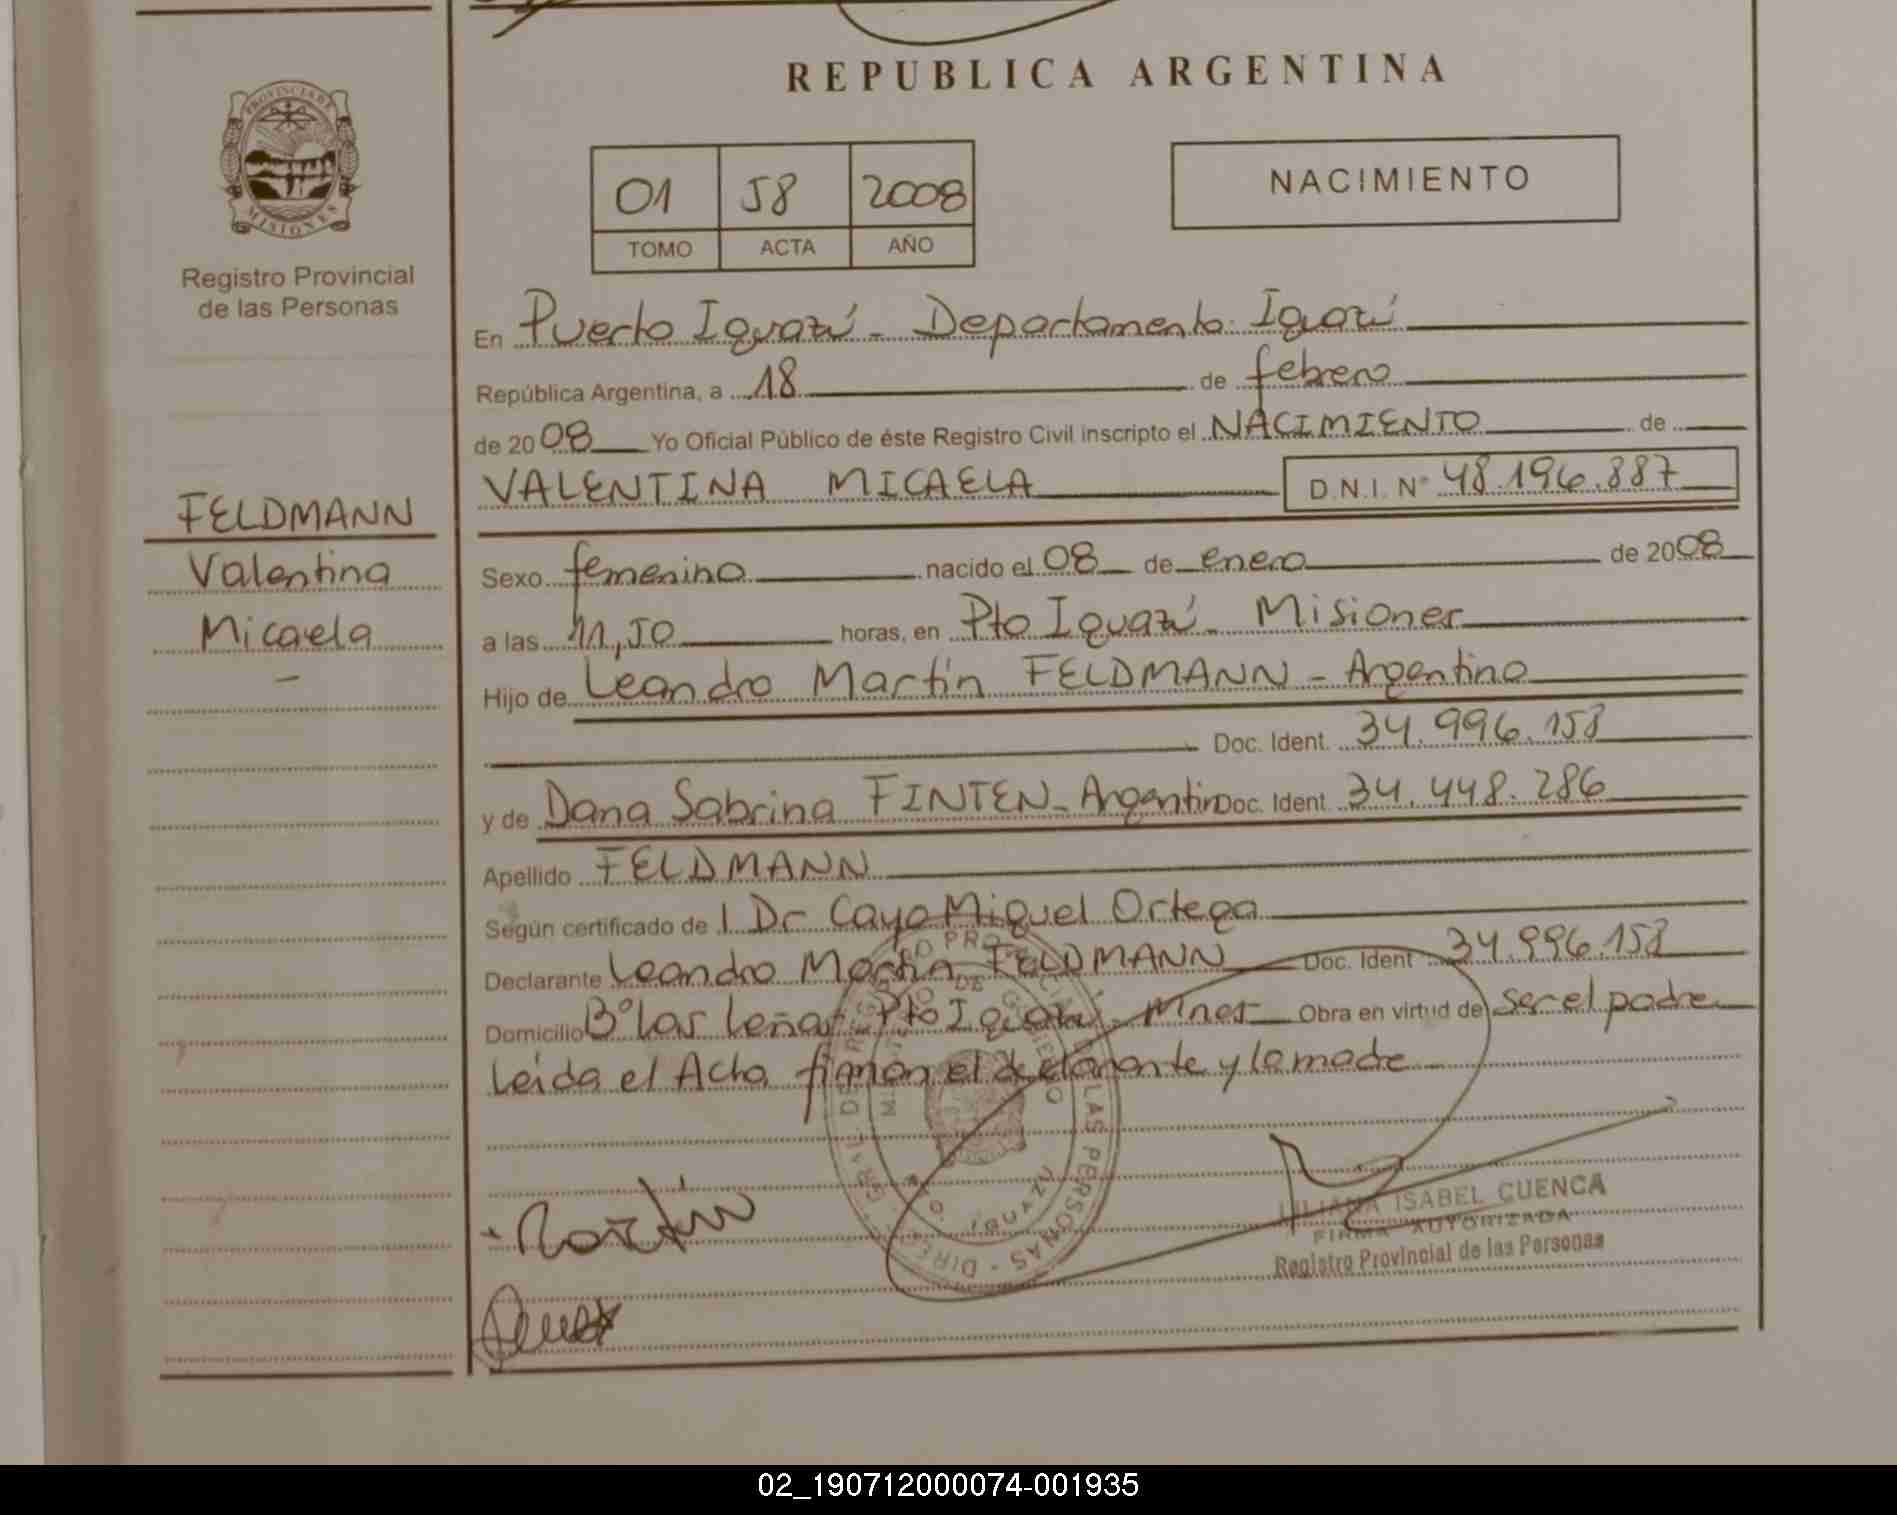 REPUBLICA ARGENTINA
PROVINCIA DE
MISIONES
Registro Provincial
de las Personas
01 58 2008
TOMO ACTA AÑO
NACIMIENTO
En Puerto Iguazú - Departamento Iguazú
República Argentina, a 18 de febrero
de 2008 Yo Oficial Público de éste Registro Civil inscripto el NACIMIENTO de
VALENTINA MICAELA D.N.I. Nº 48.196.887
FELDMANN
Valentina
Micaela
Sexo femenino nacido el 08 de enero de 2008
a las 11,50 horas, en Pto Iguazú - Misiones
Hijo de Leandro Martín FELDMANN - Argentino
Doc. Ident. 34.996.158
y de Dana Sabrina FINTEN - Argentin Doc. Ident. 34.448.286
Apellido FELDMANN
Según certificado de l Dr Cayo Miguel Ortega
Declarante Leandro Martín FELDMANN Doc. Ident 34.996.158
Domicilio Bº Las Leñas Pto Iguazú - Mnes Obra en virtud de ser el padre
Leída el Acta firman el declarante y la madre
LAS PERSONAS
IGUAZU
Martin
LILIANA ISABEL CUENCA
FIRMA AUTORIZADA
Registro Provincial de las Personas
02_190712000074-001935